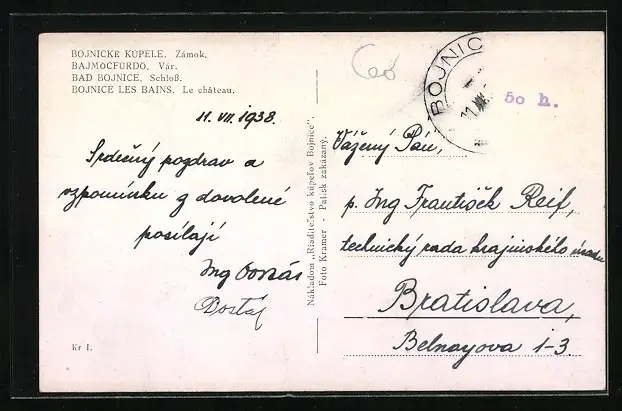 BOJNICKÉ KÚPELE. Zámok.
BAJMÓCFÜRDŐ. Vár.
BAD BOJNICE. Schloß.
BOJNICE LES BAINS. Le château.
11. VII. 1938.
Srdečný pozdrav a
vzpomínku z dovolené
posílají
Ing
Nákladom „Riaditeľstvo kúpeľov Bojnice".
Foto Kramer - Patisk zakázaný.
Kr I.
BOJNIC
50 h.
Vážený Pán,
p. Ing František Reif,
technický rada krajinského úradu
Bratislava,
Belnayova 1-3.